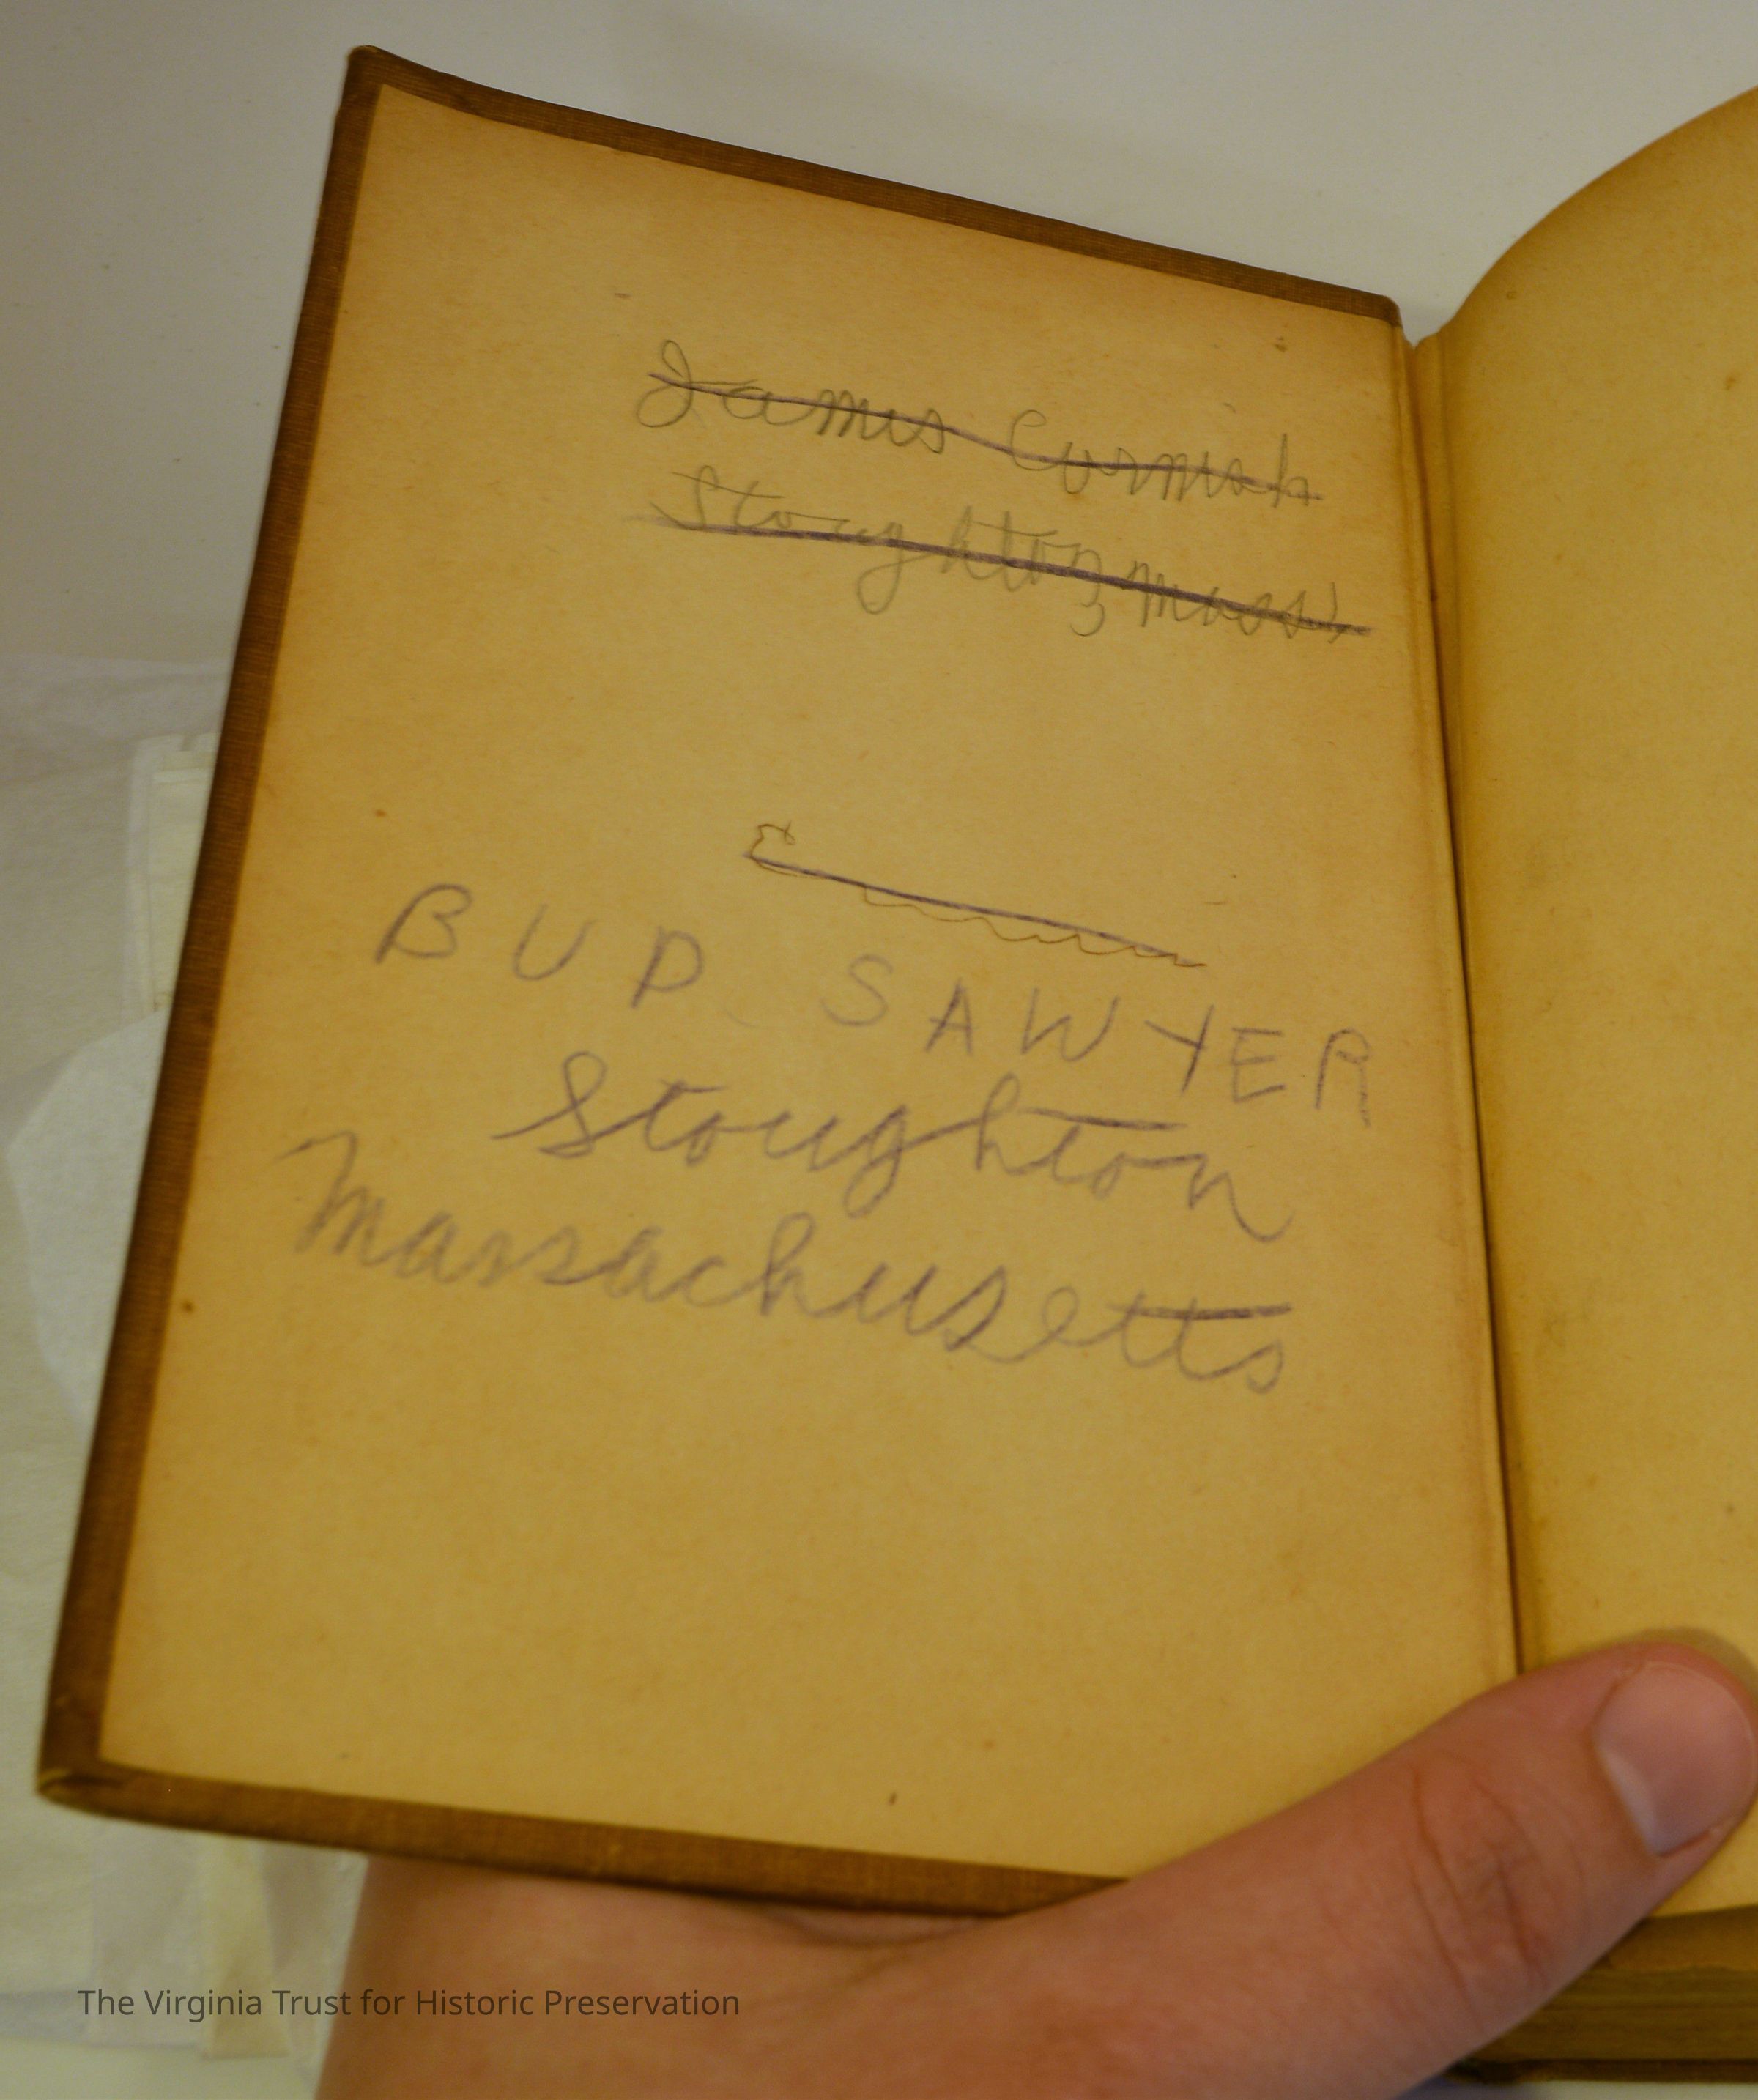 James Cornish
Stoughton Mass
BUD SAWYER
Stoughton
Massachusetts
The Virginia Trust for Historic Preservation